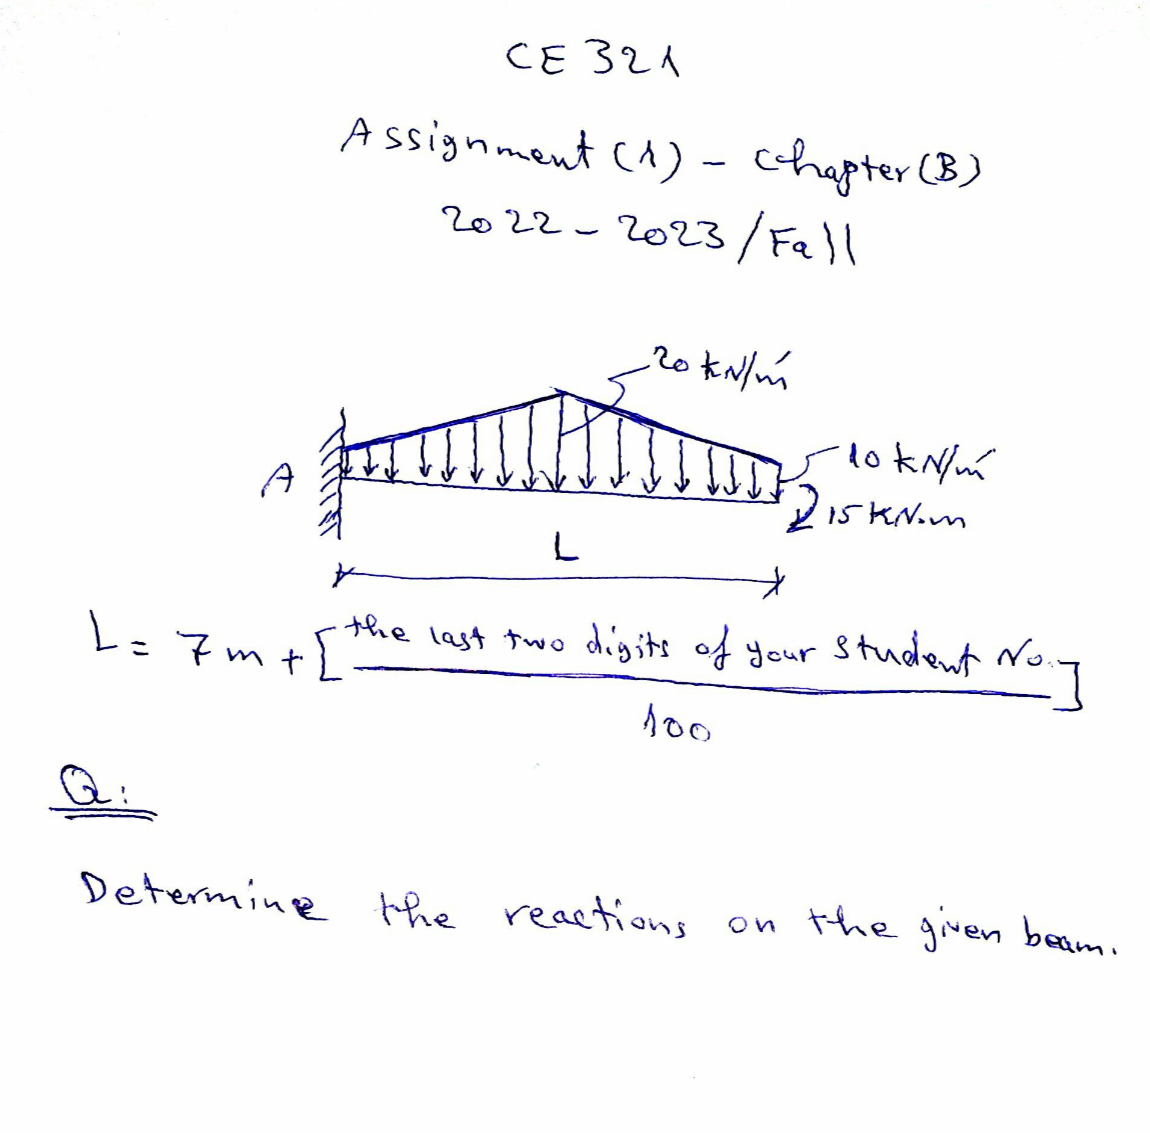 CE 321
Assignment (1) - Chapter (B)
2022 - 2023 / Fall
20 kN/m'
10 kN/m'
A
15 kN.m
L
L = 7 m + [the last two digits of your student No.]
100
Q:
Determine the reactions on the given beam.